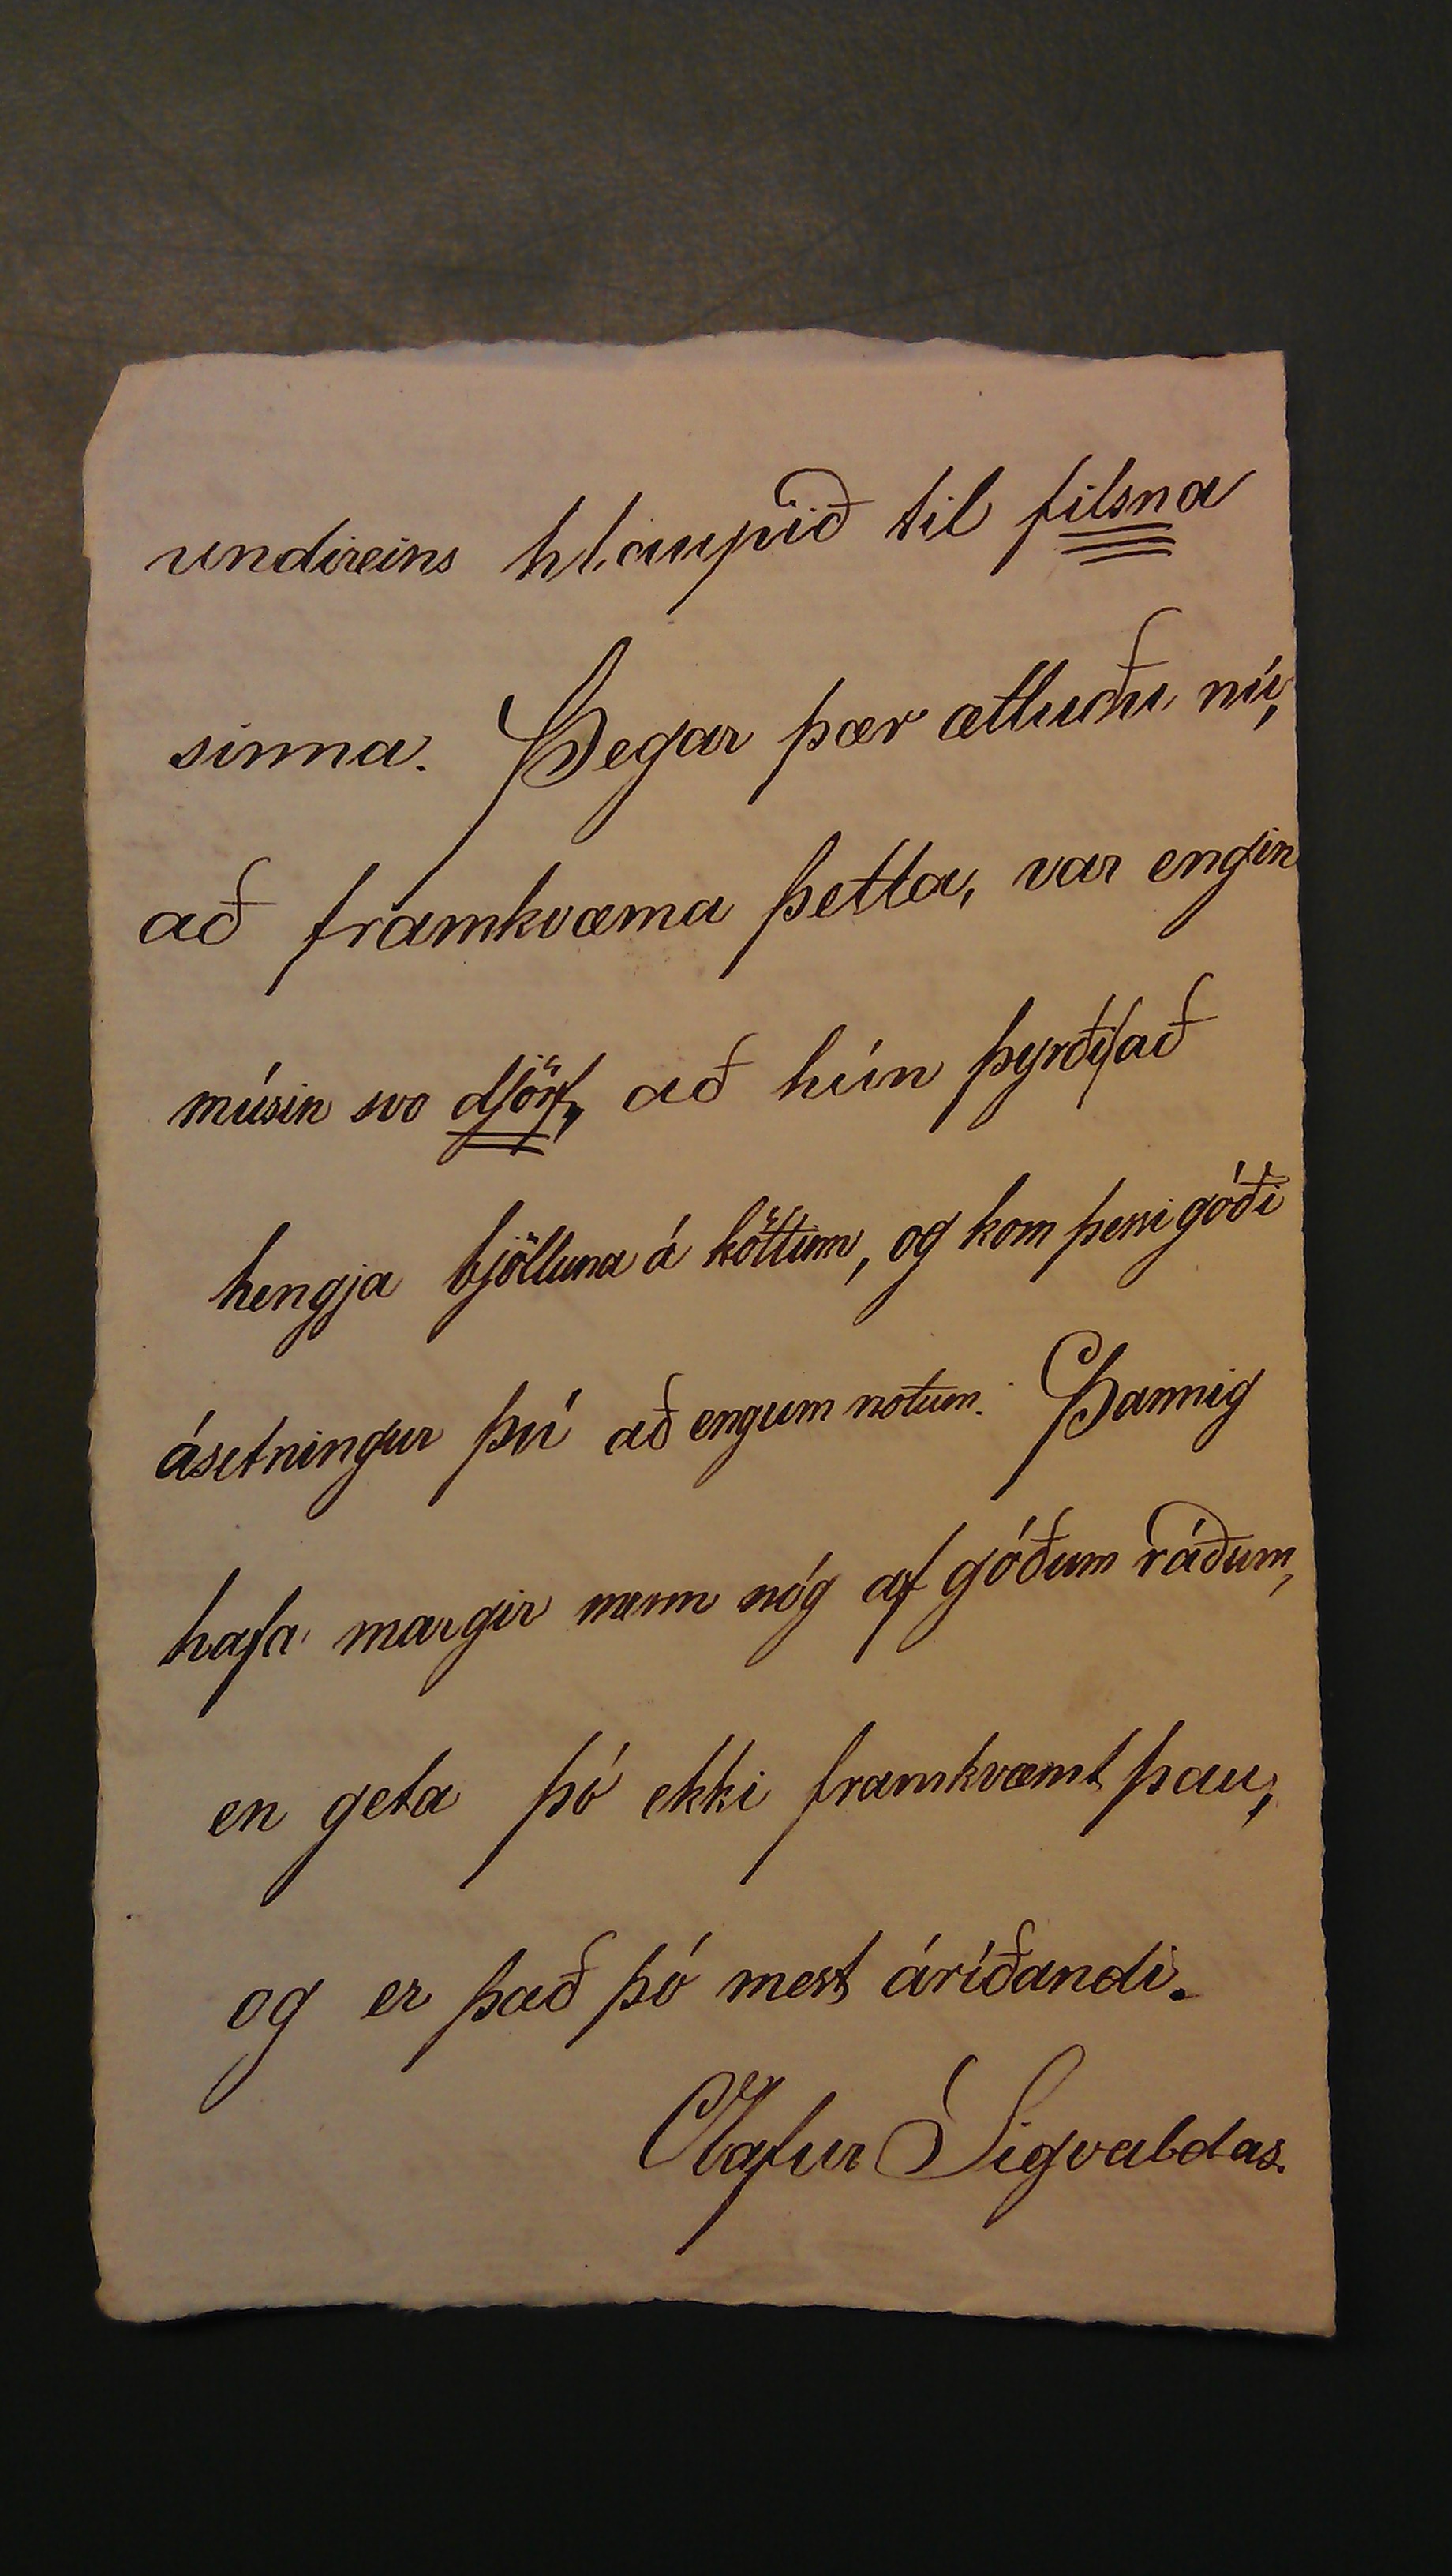 undireins hlaupið til filsna
sinna. Þegar þær ætluðu nú,
að framkvæma þetta, var engin
músin svo djörf, að hún þyrði að
hengja bjölluna á köttum, og kom þessi góði
ásetningur því að engum notum. Þannig
hafa margir menn nóg af góðum ráðum,
en geta þó ekki framkvæmt þau,
og er það þó mest áríðandi.
Olafur Sigvaldas.